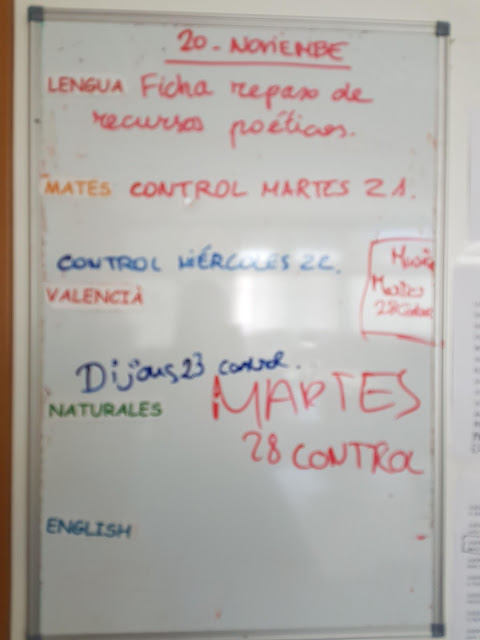 20-NOVIEMBE
LENGUA Ficha repaso de
recursos poéticos.
MATES CONTROL MARTES 21.
CONTROL MIÉRCOLES 22.
VALENCIÀ
Martes
28 Control
Dijous 23 control.
NATURALES MARTES
28 CONTROL
ENGLISH